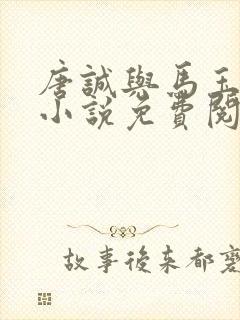 唐誠與馬王
小說免費閱
故事後來都